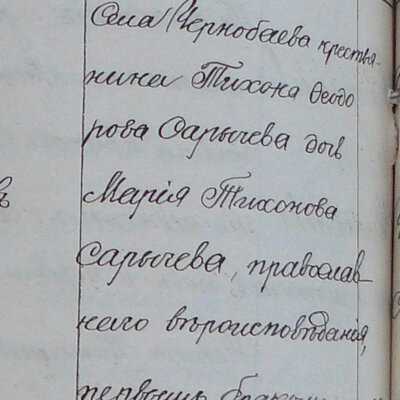 Села Чернобаева крестья-
нина Тихона Ѳеодо
рова Сарычева дочь
Марія Тихонова
Сарычева, православ-
наго вѣроисповѣданія,
первымъ бракомъ